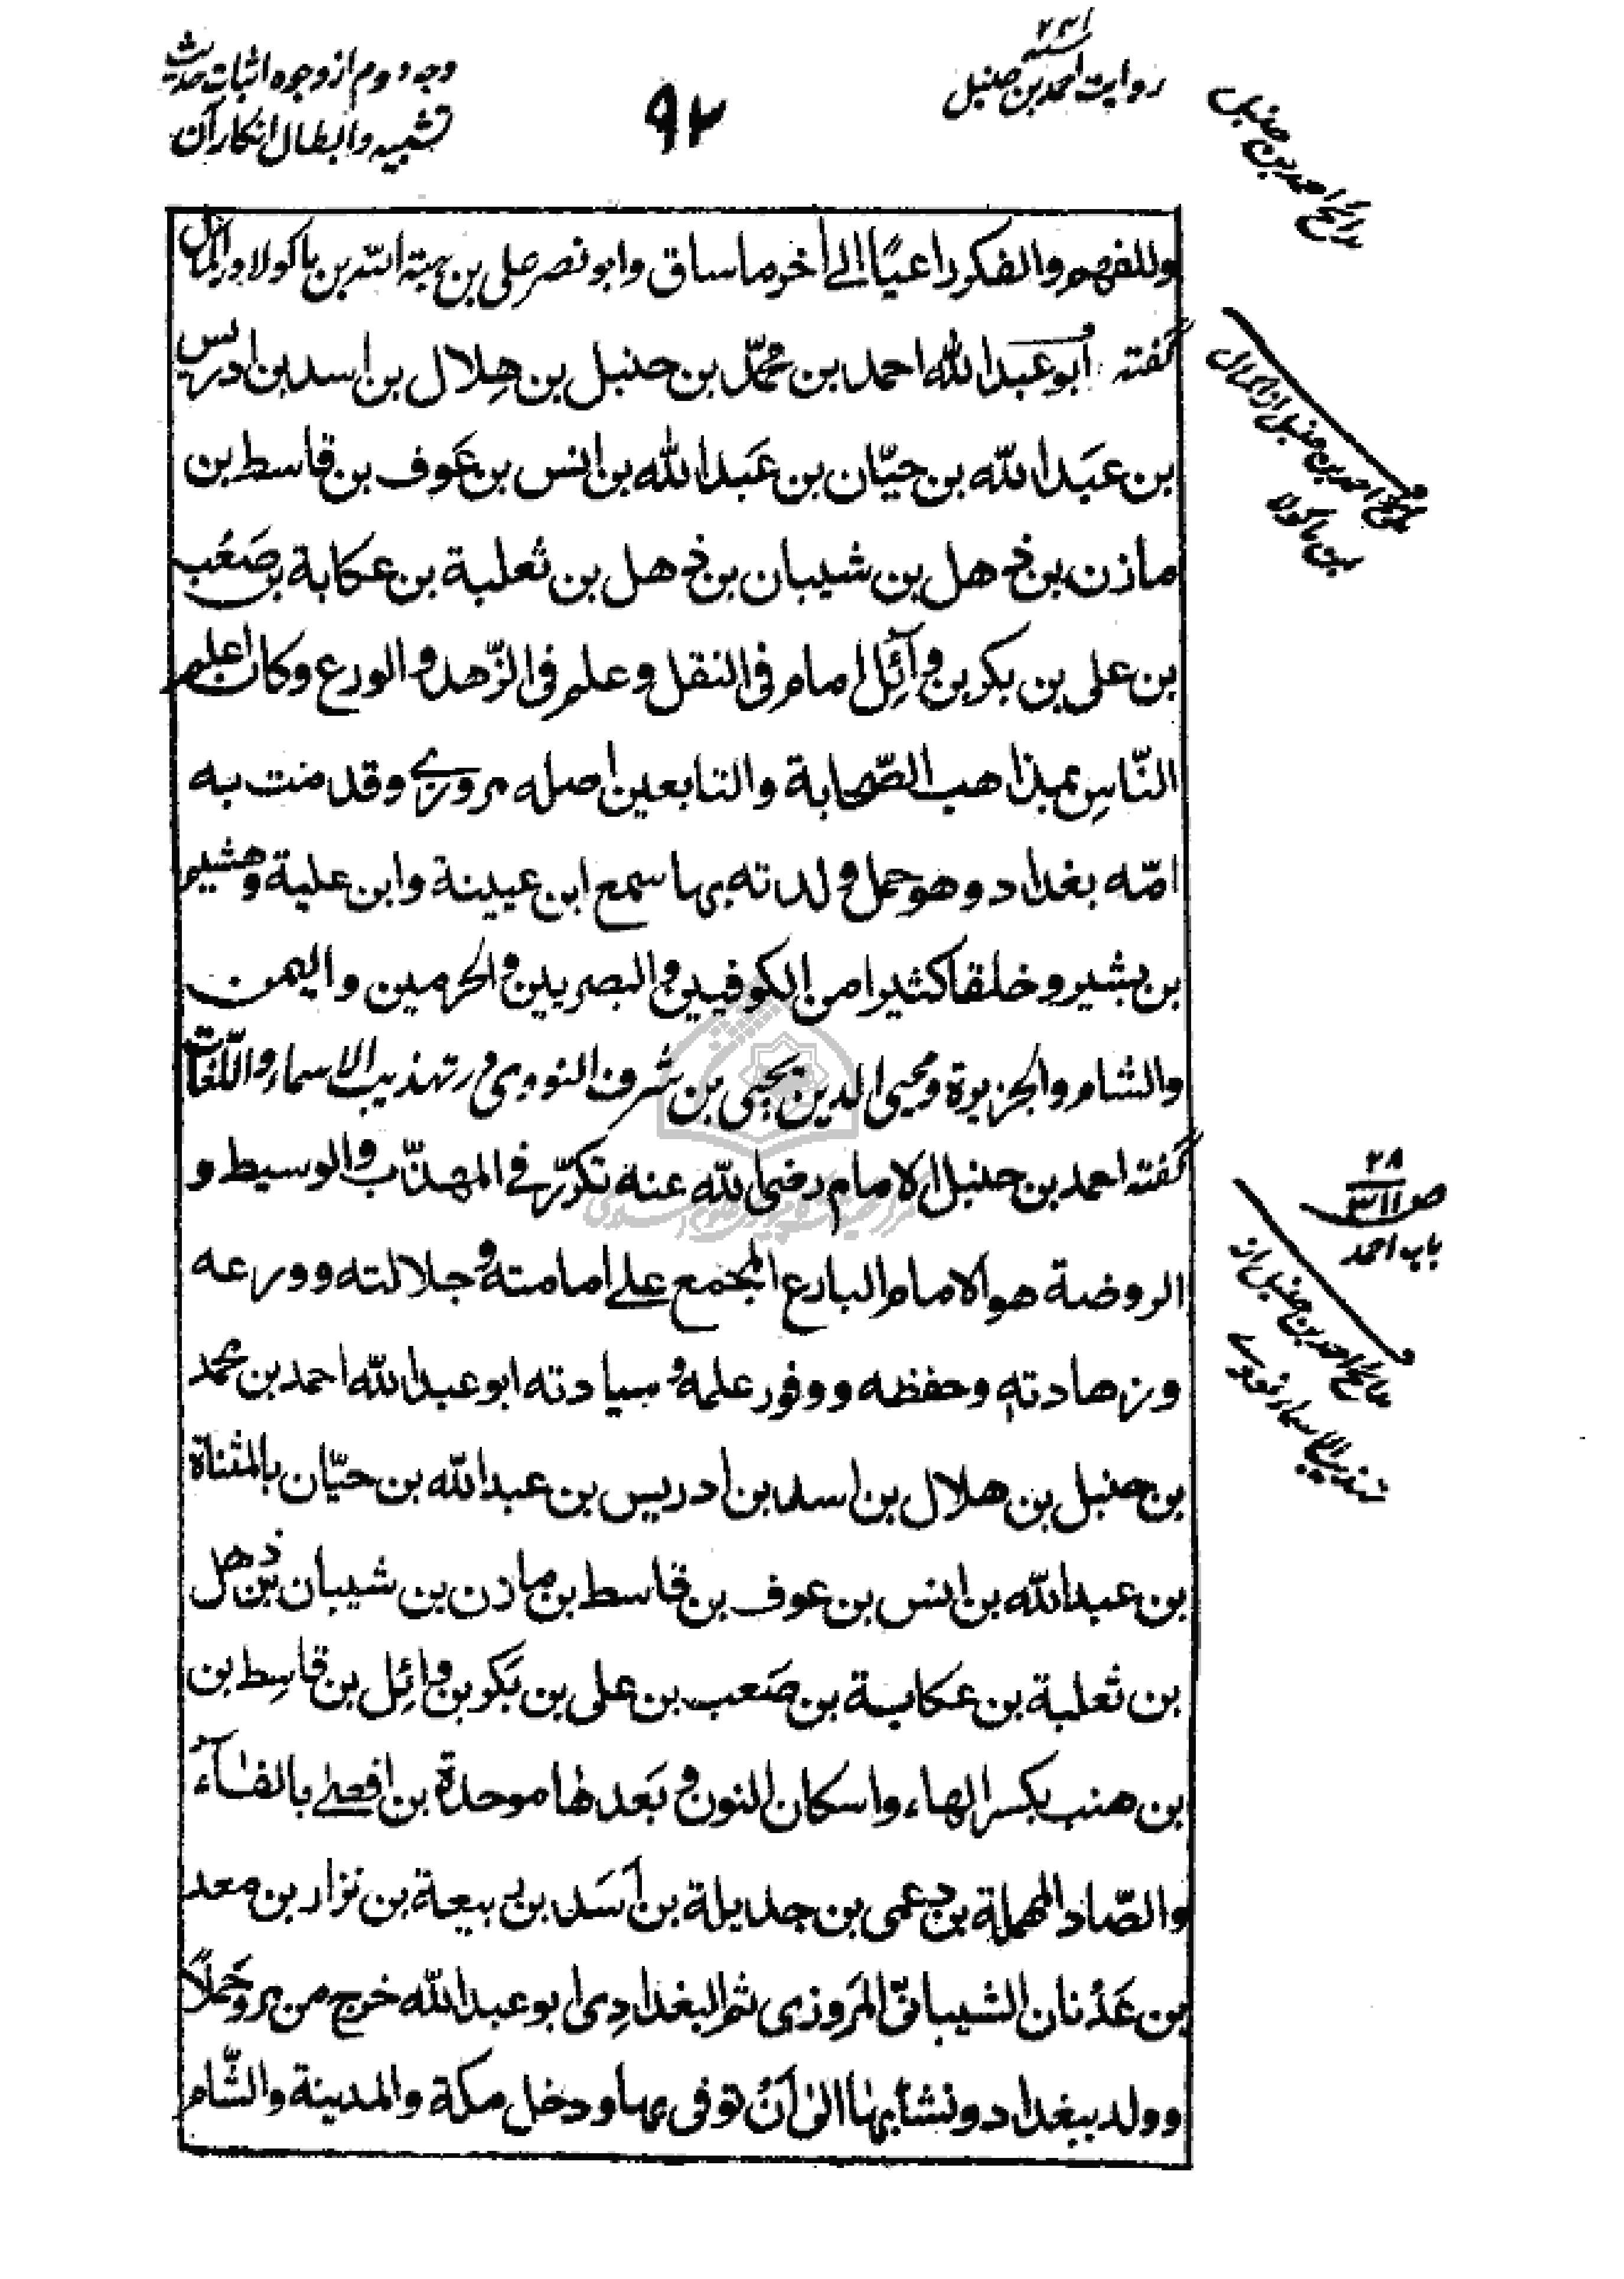 ۲۴۱
روایت احمد بن حنبل
۹۲
وجه دوم از وجوه اثبات حدیث
تشبیه و ابطال انکار آن
مدائح احمد بن حنبل
وللفهم والفكر راعيًا الى اخر ما ساق وابو نصر على بن هبة الله بن ماكولا در اكمال
گفته ابو عبد الله احمد بن محمّد بن حنبل بن هِلال بن اسد بن ادريس
بن عَبد الله بن حيّان بن عَبد الله بن انس بن عَوف بن قاسط بن
مازن بن ذهل بن شيبان بن ذهل بن ثعلبة بن عكابة بن صَعب
بن على بن بكر بن وآئِل امام فى النقل وعلم فى الزّهد والورع وكان اعلم
النّاسِ بمذاهب الصّحابة والتابعين اصله مروزے وقدمت به
امّه بغداد وهو حمل وولدته بها سمع ابن عيينة وابن علية وهشيم
بن بشير وخلقا كثيرا من الكوفيين والبصريين والحرمين واليمن
والشام والجزيرة ومحيى الدين يَحيى بن شرف النووى در تهذيب الاسماء واللّغات
گفته احمد بن حنبل الامام رضى الله عنه تكرّر فے المهذّب والوسيط و
الروضة هو الامام البارع المجمع على امامته وجلالته وورعه
وزهادته وحفظه ووفور علمه وسيادته ابو عبد الله احمد بن محمد
بن حنبل بن هلال بن اسد بن ادريس بن عبد الله بن حيّان بالمثناة
بن عبد الله بن انس بن عوف بن قاسط بن مازن بن شيبان بن ذهل
بن ثعلبة بن عكابة بن صَعب بن على بن بَكر بن وائِل بن قاسِط بن
بن هنب بكسر الهاء واسكان النون وبَعدها موحدة بن افصى بالفآء
والصّاد المهملة بن دعمى بن جديلة بن أسَد بن ربيعة بن نزار بن معد
بن عَدْنان الشيبانىّ المَروزى ثم البغدادِى ابو عبد الله خرج من مرو حَملًا
وولد ببغداد ونشأ بها الى اَنْ توفى بها ودخل مكة والمدينة والشّام
مدائح احمد بن حنبل از اکمال
ابن ماکولا
۲۸
ص ۳۱۱
باب احمد
مدائح احمد بن حنبل از
تهذیب الاسماء نووے